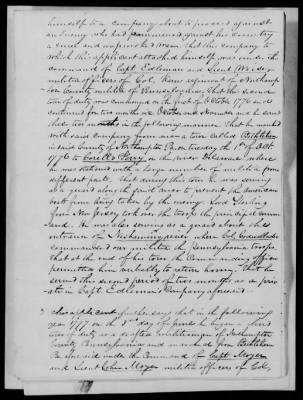 himself to a company about to proceed against
an enemy who had commenced against her Country
a such and unprovoked war. that this company to
which this applicant attached himself was under the
command of Capt Edleman and Lieut
militia officers of Col. regiment of Northamp
ton County militia of Pennsylvania, that this second
tour of duty was commenced on the first of October 1776 and
continued for two months viz October and November and he served
this two in the following manner. That he marched
with said Company from near a town called Bethlehem
in said County of Northampton Penn tuesday the 1st of Oct.
1776 to Corells Ferry on the river Delaware where
he was stationed with a large number of militia from
different parts. That during this tour he was serving
as a guard along the said river to prevent the American
boats from being taken by the enemy. Lord Sterling
from New Jersey took over the troops the principal comm
and. He was also serving as a guard about the
outskirts of where Col
commanded our militia the Pennsylvania troops,
that at the end of his tour the Commanding officer
permitted him verbally to return home. that he
served this second period of two months as a priv
ate in Capt. Edlemans Company aforesaid
3 This applicant further says that in the following
year 1777 on the 1st day of he began a third
tour of duty as a drafted militiaman of Northampton
County Pennsylvania and marched from Bethlehem
Pa aforesaid under the Command of Capt. Moyer
and Lieut John Moyer militia officers of Col,